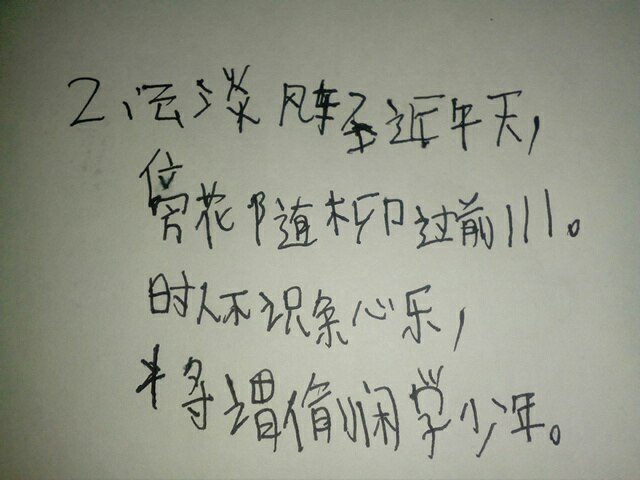 2、云淡风轻近午天，
傍花随柳过前川。
时人不识余心乐，
将谓偷闲学少年。